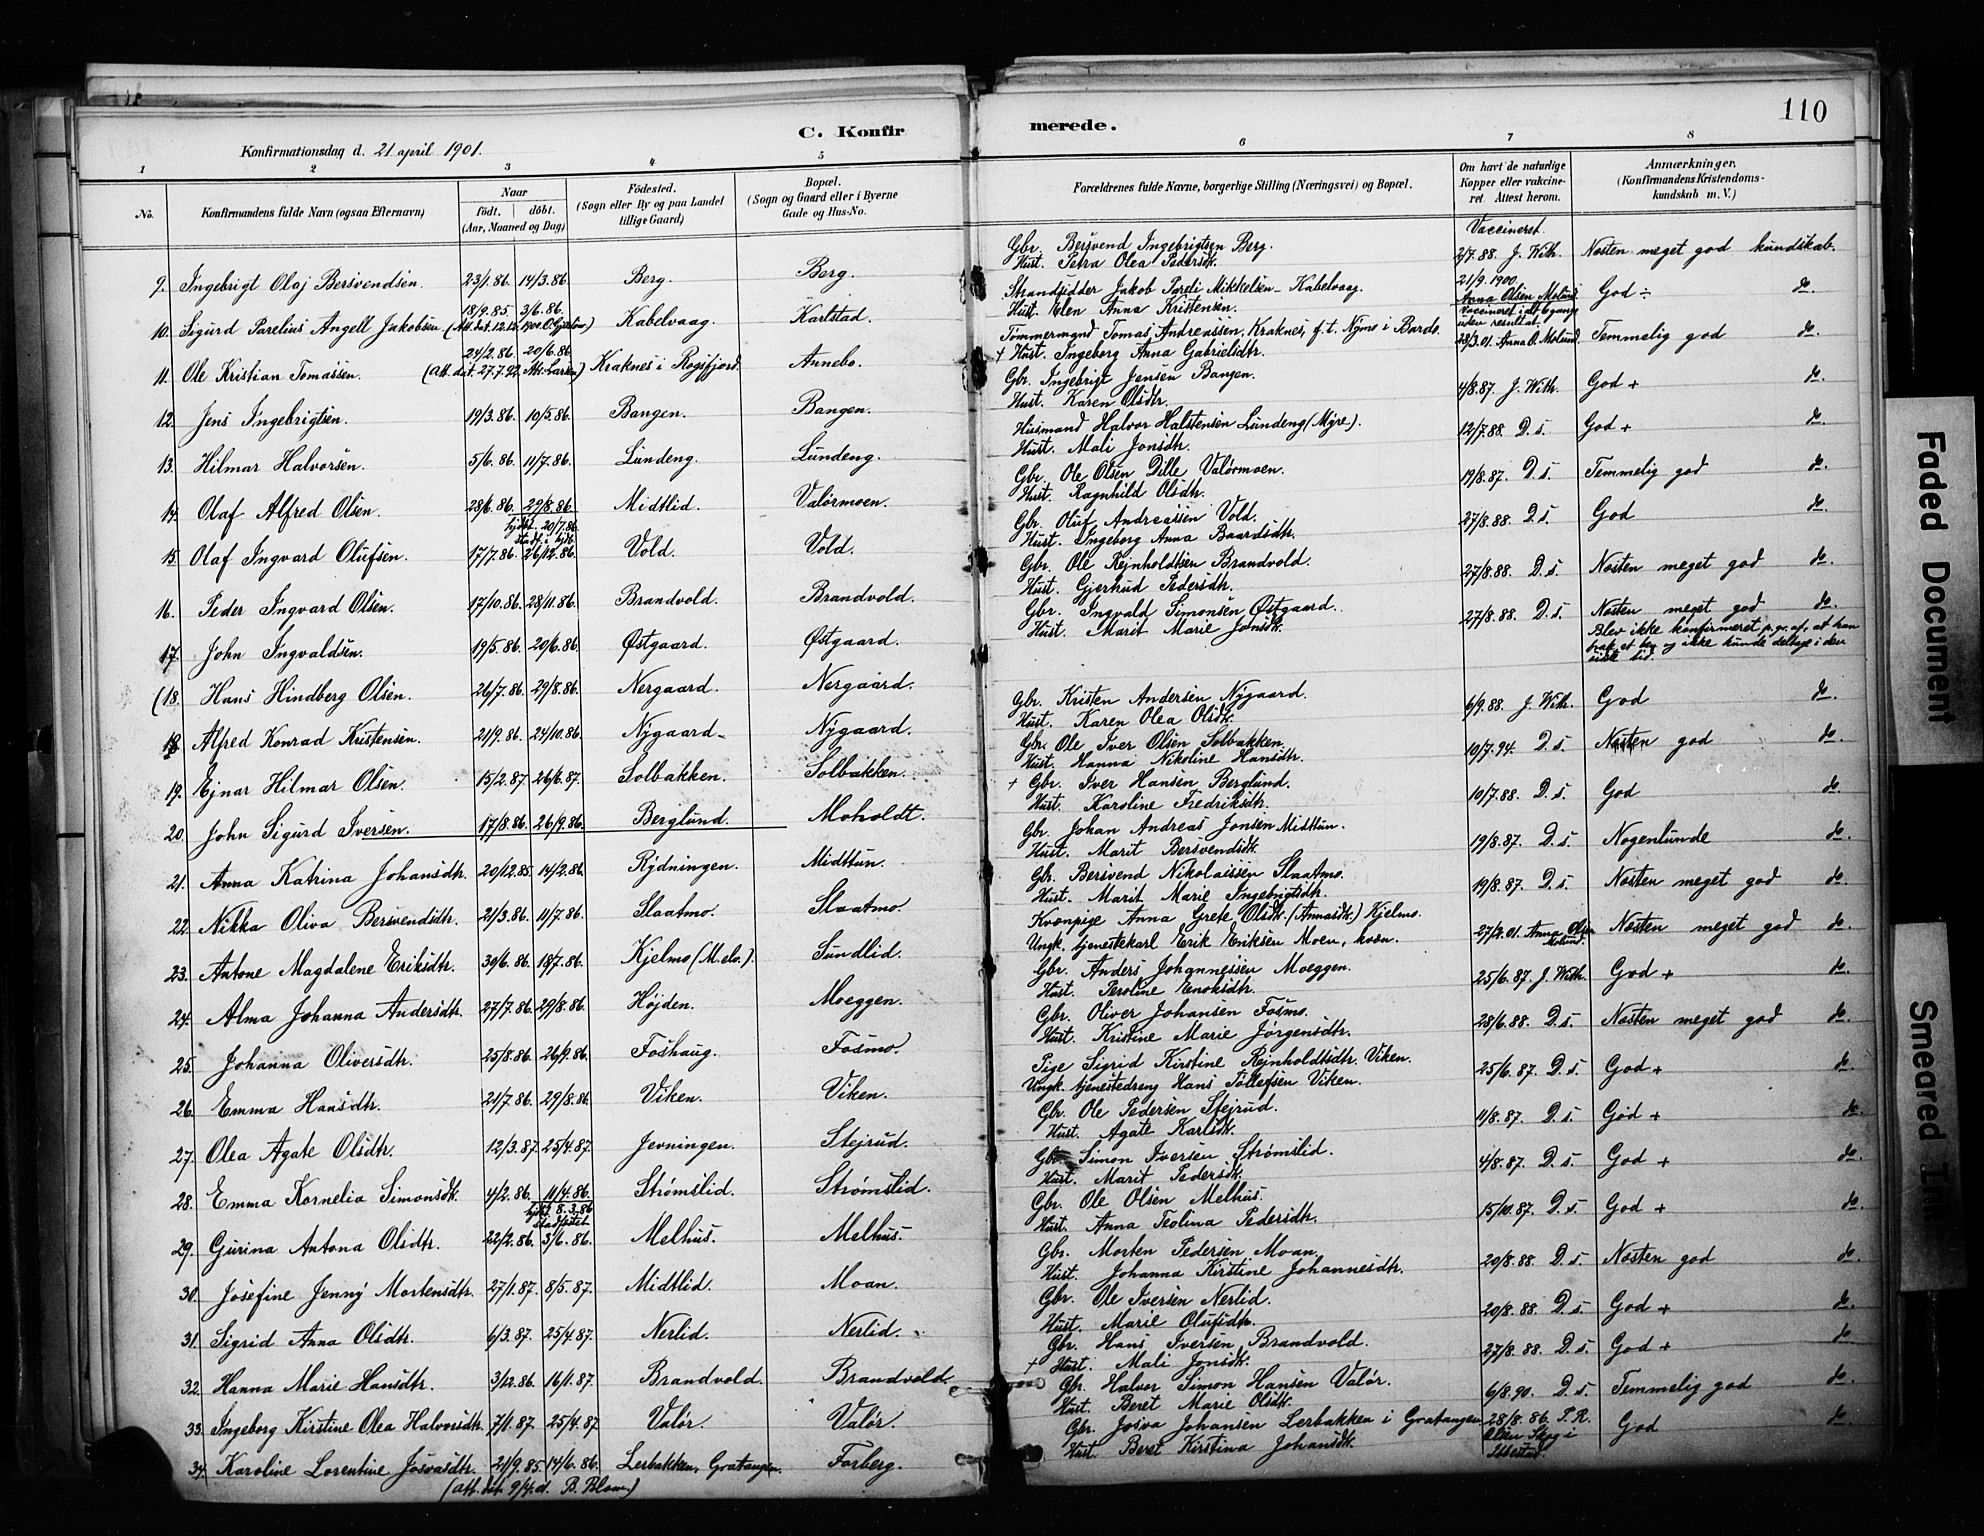 110
C. Konfirmerede.
Konfirmationsdag d. 21 april 1901.
1 2 3 4 5 6 7 8
No.
Konfirmandens fulde Navn (ogsaa Efternavn)
Naar
födt. döbt.
(Aar, Maaned og Dag)
Födested.
(Sogn eller By og paa Landet
tillige Gaard)
Bopæl.
(Sogn og Gaard eller i Byerne
Gade og Hus-No.
Forældrenes fulde Navne, borgerlige Stilling (Næringsvei) og Bopæl.
Om havt de naturlige
Kopper eller vaccine-
ret. Attest herom.
Anmærkninger.
(Konfirmandens Kristendoms-
kundskab m. V.)
Vaccineret.
9. Ingebrigt Olaj Bersvendsen. 23/1.86. 14/3.86. Berg. Berg. Gbr. Bersvend Ingebrigtsen Berg. 2/7.88. J. With. Næsten meget god kundskab.
Hust. Petra Olea Pedersdtr.
10. Sigurd Parelius Angell Jakobsen 18/9.85. 3/6.86. Kabelvaag. Karlstad. Strandsidder Jakob Pareli Mikkelsen - Kabelvaag. 21/9.1900. Anna Olsen Molund God ÷ do.
Hust. Elen Anna Kristensen. Vaccineret i alt 6 gange uden resultat.
11. Ole Kristian Tomassen. 24/2.86. 20/6.86. (Att. dat. 27.7.92. Larsen) Kraknes i Rogsfjord. Annebo. Tömmermand Tomas Andreassen, Kraknes, f.t. Nymo i Bardo. 28/3.01. Anna O. Molund. Temmelig god do.
+ Hust. Ingeborg Anna Gabrielsdtr.
12. Jens Ingebrigtsen. 19/3.86. 10/5.86. Bangen. Bangen. Gbr. Ingebrigt Jensen Bangen. 4/8.87. J. With. God + do.
Hust. Karen Olsdtr.
13. Hilmar Halvorsen. 5/6.86. 11/7.86. Lundeng. Lundeng. Husmand Halvor Halstensen Lundeng (Myre). 12/7.88. D. s. God + do.
Hust. Mali Jonsdtr.
14. Olaf Alfred Olsen. 28/6.86. 29/8.86. Midtlid. Valørmoen. Gbr. Ole Olsen Dille Valørmoen. 19/8.87. D. s. Temmelig god do.
Hust. Ragnhild Olsdtr.
15. Olaf Ingvard Olufsen. 17/7.86. hjdbt. 20/7.86. stadf. i 26/12.86. Vold. Vold. Gbr. Oluf Andreassen Vold. 27/8.88. D. s. God do.
Hust. Ingeborg Anna Baardsdtr.
16. Peder Ingvard Olsen. 17/10.86. 28/11.86. Brandvold. Brandvold. Gbr. Ole Rejnholdtsen Brandvold. 27/8.88. D. s. Næsten meget god do.
Hust. Gjertrud Pedersdtr.
17. John Ingvaldsen. 19/5.86. 20/6.86. Østgaard. Østgaard. Gbr. Ingvald Simonsen Østgaard. 27/8.88. D. s. Næsten meget god do.
Hust. Marit Marie Jonsdtr.
(18. Hans Hindberg Olsen. 26/7.86. 29/8.86. Nergaard. Nergaard. Blev ikke konfirmeret p.gr.af, at han
brak et ben og ikke kunde deltage i den
siste tid.
18. Alfred Konrad Kristensen. 21/9.86. 24/10.86. Nygaard. Nygaard. Gbr. Kristen Andersen Nygaard. 6/9.88. J. With. God do.
Hust. Karen Olea Olsdtr.
19. Ejnar Hilmar Olsen. 15/2.87. 26/6.87. Solbakken. Solbakken. Gbr. Ole Iver Olsen Solbakken. 10/7.94. D. s. Næsten god do.
Hust. Hanna Nikoline Hansdtr.
20. John Sigurd Iversen. 17/8.86. 26/9.86. Berglund. Moholdt. + Gbr. Iver Hansen Berglund. 10/7.88. D. s. God do.
Hust. Karoline Fredriksdtr.
21. Anna Katrina Johansdtr. 20/12.85. 14/2.86. Rydningen. Midttun. Gbr. Johan Andreas Jonsen Midttun. 19/8.87. D. s. Nogenlunde do.
Hust. Marit Bersvendsdtr.
22. Nikka Oliva Bersvendsdtr. 21/3.86. 11/7.86. Slaatmo. Slaatmo. Gbr. Bersvend Nikolaissen Slaatmo. 19/8.87. D. s. Næsten meget god do.
Hust. Marit Marie Ingebrigtsdtr.
23. Antone Magdalene Eriksdtr. 30/6.86. 18/7.86. Kjelmo (M.elv.). Sundlid. Kvænpige Anna Grete Olsdtr. (Annasdtr.) Kjelmo. 27/2.01. Anna Olsen Molund. Næsten meget god do.
Ungk. tjenestekarl Erik Eriksen Moen, kvæn.
24. Alma Johanna Andersdtr. 27/7.86. 29/8.86. Højden. Moeggen. Gbr. Anders Johannessen Moeggen. 25/6.87. J. With. God + do.
Hust. Peroline Enoksdtr.
25. Johanna Oliversdtr. 25/8.86. 26/9.86. Foshaug. Fosmo. Gbr. Oliver Johansen Fosmo. 28/6.88. D. s. Næsten meget god do.
Hust. Kristine Marie Jörgensdtr.
26. Emma Hansdtr. 21/7.86. 29/8.86. Viken. Viken. Pige Sigrid Kirstine Rejnholdtsdtr. Viken. 25/6.87. D. s. God + do.
Ungk. tjenestedreng Hans Tollefsen Viken.
27. Olea Agate Olsdtr. 12/3.87. 25/4.87. Jevningen. Stejrud. Gbr. Ole Pedersen Stejrud. 11/8.87. D. s. God + do.
Hust. Agate Karlsdtr.
28. Emma Kornelia Simonsdtr. 4/2.86. 11/4.86. Strømslid. Strømslid. Gbr. Simon Iversen Strømslid. 4/8.87. D. s. God + do.
Hust. Marit Pedersdtr.
29. Gurina Antona Olsdtr. 22/2.86. hjdbt. 8.3.86 stadfestet 3/6.86. Melhus. Melhus. Gbr. Ole Olsen Melhus. 15/10.87. D. s. God + do.
Hust. Anna Teolina Pedersdtr.
30. Josefine Jenny Mortensdtr. 27/1.87. 8/5.87. Midtlid. Moan. Gbr. Morten Pedersen Moan. 20/8.88. D. s. Næsten god do.
Hust. Johanna Kirstine Johannesdtr.
31. Sigrid Anna Olsdtr. 6/3.87. 25/4.87. Nerlid. Nerlid. Gbr. Ole Iversen Nerlid. 20/8.88. D. s. God + do.
Hust. Marie Olufsdtr.
32. Hanna Marie Hansdtr. 3/12.86. 16/1.87. Brandvold. Brandvold. Gbr. Hans Iversen Brandvold. 27/8.88. D. s. God + do.
+ Hust. Mali Jonsdtr.
33. Ingeborg Kirstine Olea Halvorsdtr. 7/1.87. 25/4.87. Valør. Valør. Gbr. Halvor Simon Hansen Valør. 6/8.90. D. s. Temmelig god do.
Hust. Beret Marie Olsdtr.
34. Karoline Lorentine Josvasdtr. 21/9.85. 14/6.86. Lerbakken, Gratangen. Forberg. Gbr. Josva Johansen Lerbakken i Gratangen 28/8.86. P. R. Olsen Skog i Ibbestad. God do.
Hust. Beret Kirstina Johansdtr.
(Att. dat. 9/4. d. B. Blom.)
Faded Document
Smeared Ink